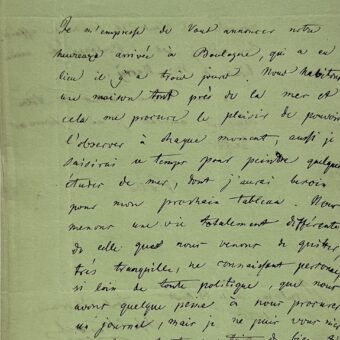 Je m'empresse de vous annoncer notre
heureuse arrivée à Boulogne, qui a eu
lieu il y a trois jours. Nous habitons
une maison tout près de la mer et
cela me procure le plaisir de pouvoir
l'observer à chaque moment, aussi je
saisirai ce temps pour peindre quelques
études de mer, dont j'aurai besoin
pour mon prochain tableau. Nous
menons une vie totalement différente
de celle que nous venons de quitter,
très tranquille, ne connaissant personne
si loin de toute politique, que nous
avons quelque peine à nous procurer
un journal, mais je ne puis vous nier